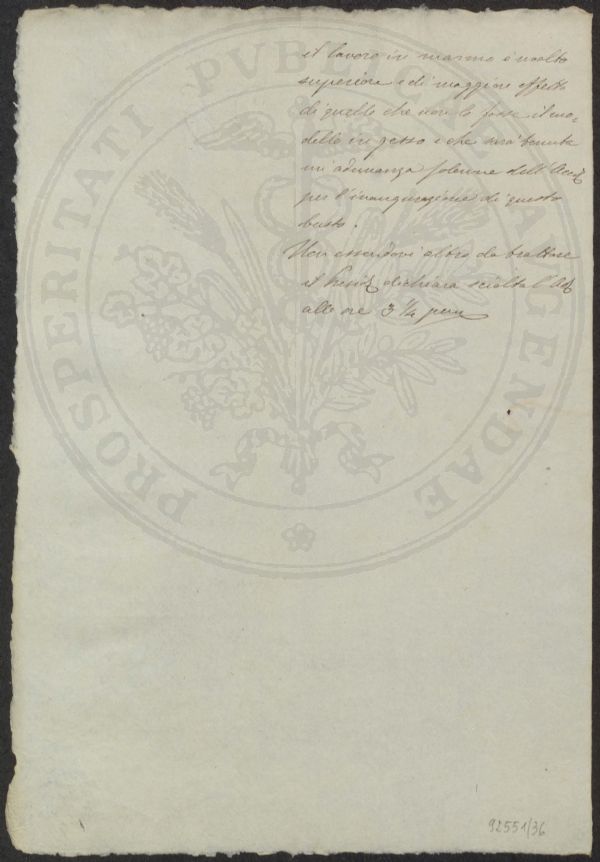 PROSPERITATI PVBLICAE AVGENDAE
il lavoro in marmo è molto
superiore e di maggiore effetto
di quello che non lo fosse il mo-
dello in gesso e che sarà tenuta
un'adunanza solenne dell'Acc.
per l'inaugurazione di questo
busto.
Non essendovi altro da trattare
il Presid. dichiara sciolta l'Ad.
alle ore 3 ¼ pom
92551/36